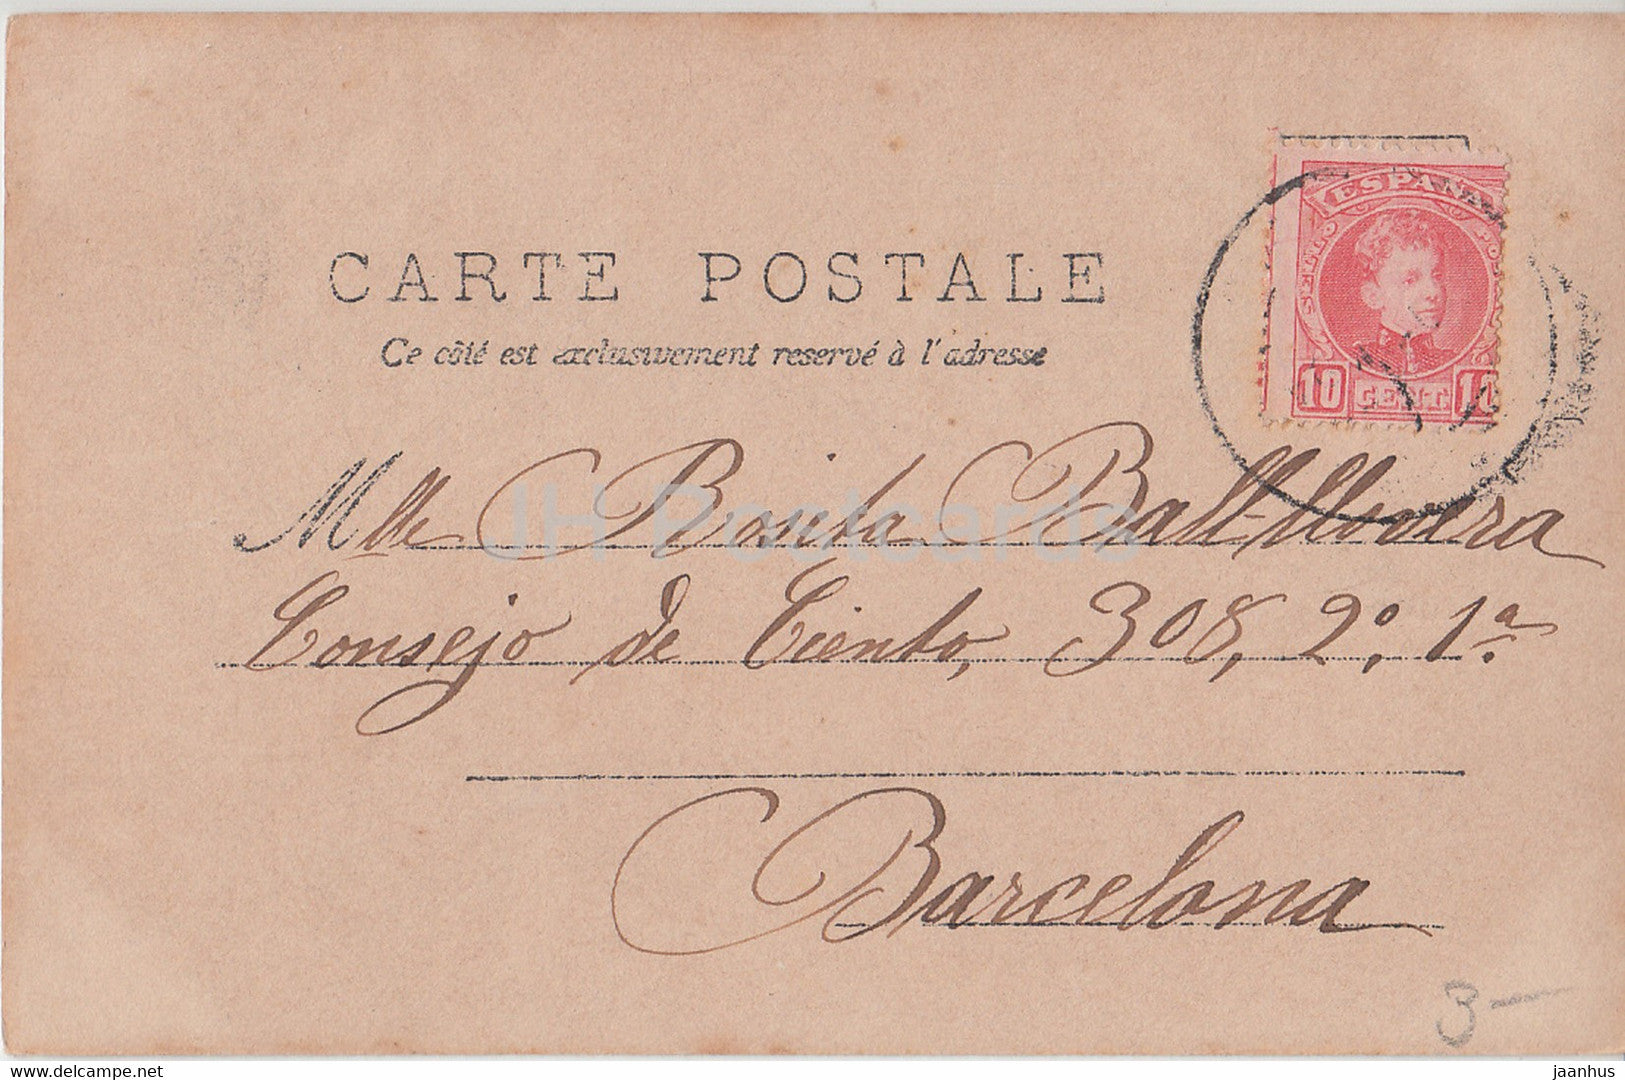 ESPAÑA
SELLO
10 CENT. 10
CARTE POSTALE
Ce côté est exclusivement reservé à l'adresse
Mlle Rosita Ball-llovera
Consejo de Ciento, 308, 2º, 1ª
Barcelona
3 —
IH Postcards
delcampe.net
jaanhus